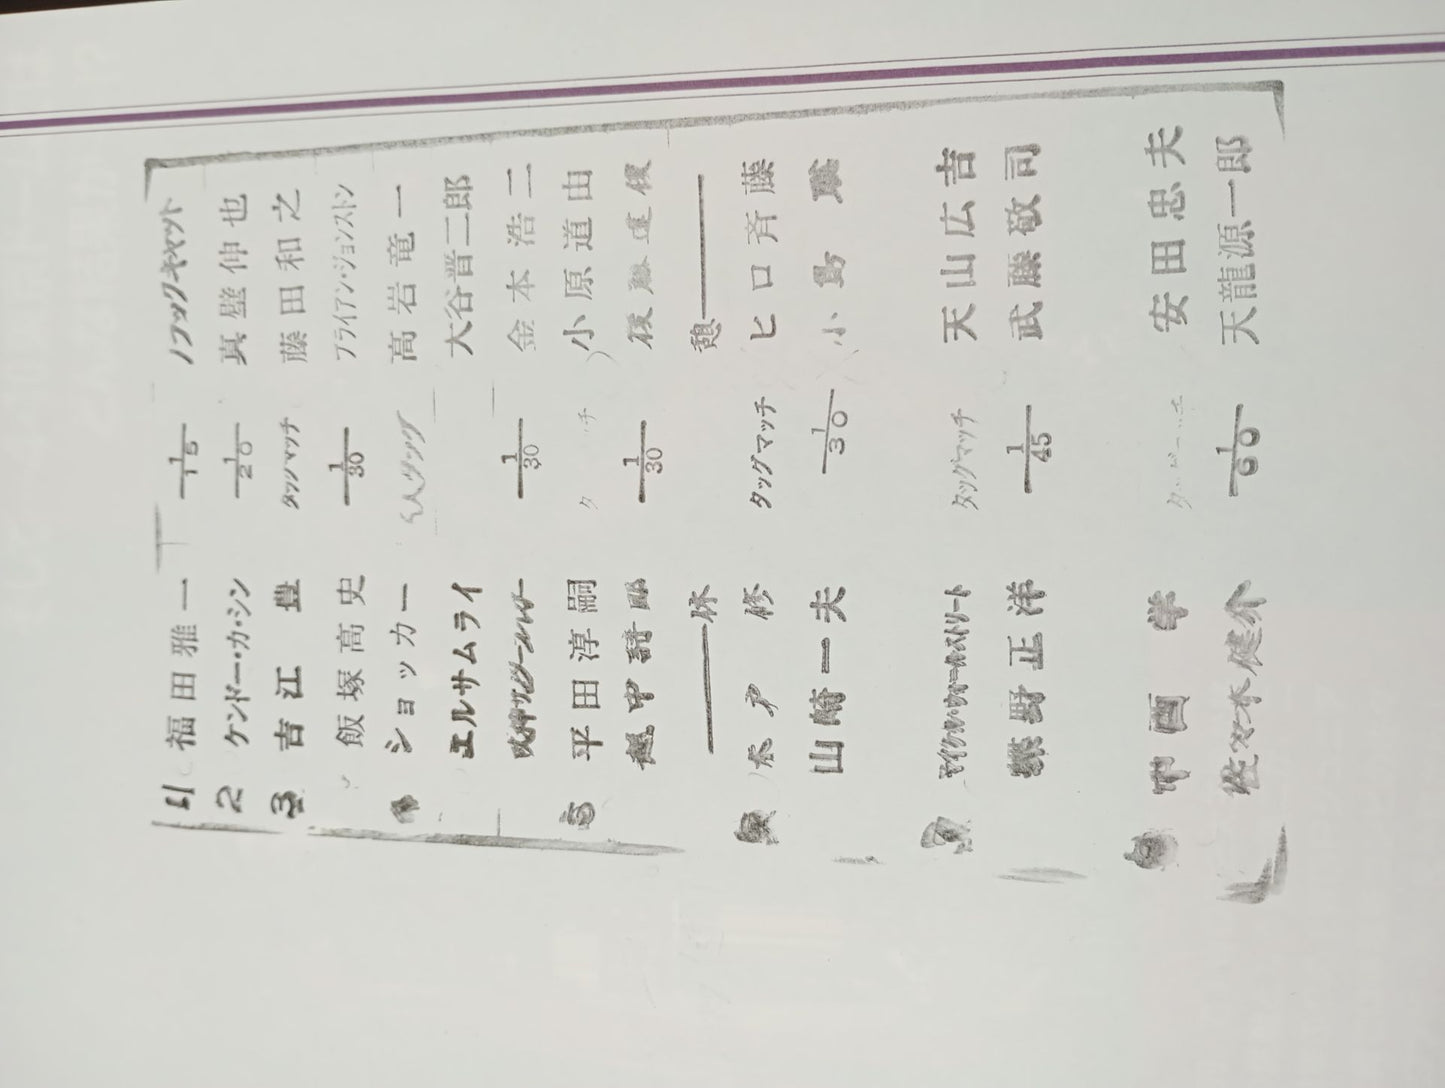 1 福田雅一 1/15 ブラックキャット
2 ケンドー・カ・シン 1/20 真壁伸也
3 吉江 豊 タッグマッチ 藤田和之
飯塚高史 1/30 ブライアン・ジョンストン
ショッカー 6人タッグ 高岩竜一
エルサムライ 大谷晋二郎
獣神サンダーライガー 1/30 金本浩二
5 平田淳嗣 小原道由
越中詩郎 1/30 後藤達俊
休 憩
木戸 修 タッグマッチ ヒロ斉藤
山崎一夫 1/30 小島 聡
マイケル・ウォールストリート タッグマッチ 天山広吉
蝶野正洋 1/45 武藤敬司
中西 学 安田忠夫
佐々木健介 1/60 天龍源一郎